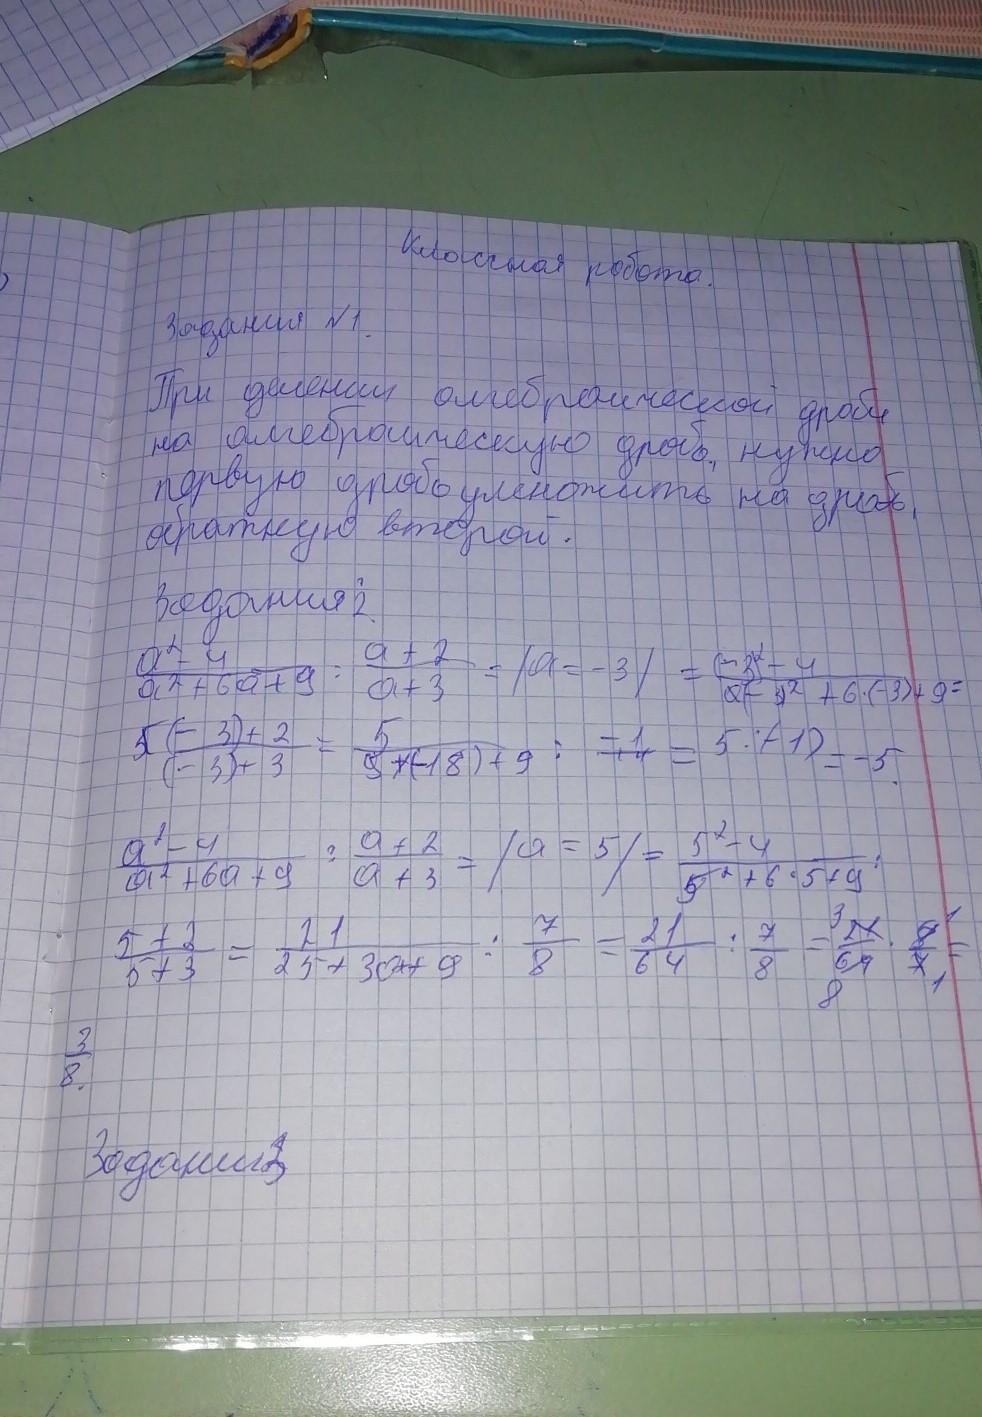 Классная робота.
Задания №1.
При делении алгебраической дроби
на алгебраическую дробь, нужно
первую дробь умножить на дробь,
обратную второй.
Задания 2.
a²-4 / a²+6a+9 : a+2 / a+3 = /a=-3/ = (-3²-4 / -3² +6·(-3)+9 =
(-3)+2 / (-3)+3 = 5 / 9+(-18)+9 : -1 = 5·(-1) = -5.
a²-4 / a²+6a+9 : a+2 / a+3 = /a=5/ = 5²-4 / 5²+6·5+9 :
5+2 / 5+3 = 21 / 25+30+9 : 7/8 = 21/64 : 7/8 = 21/64 · 8/7 =
3/8.
Задания 3